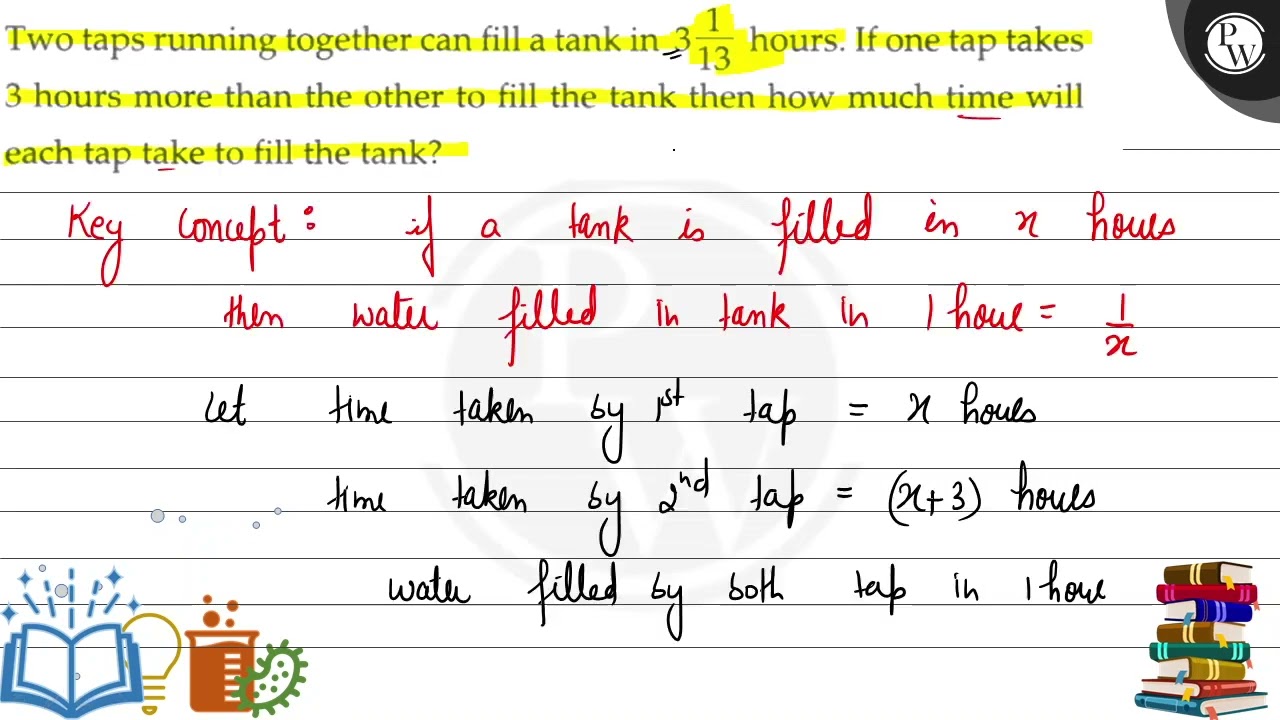 Two taps running together can fill a tank in 3 1/13 hours. If one tap takes
3 hours more than the other to fill the tank then how much time will
each tap take to fill the tank?
Key concept: if a tank is filled in x hours
then water filled in tank in 1 hour = 1/x
Let time taken by 1st tap = x hours
time taken by 2nd tap = (x+3) hours
water filled by both tap in 1 hour
PW